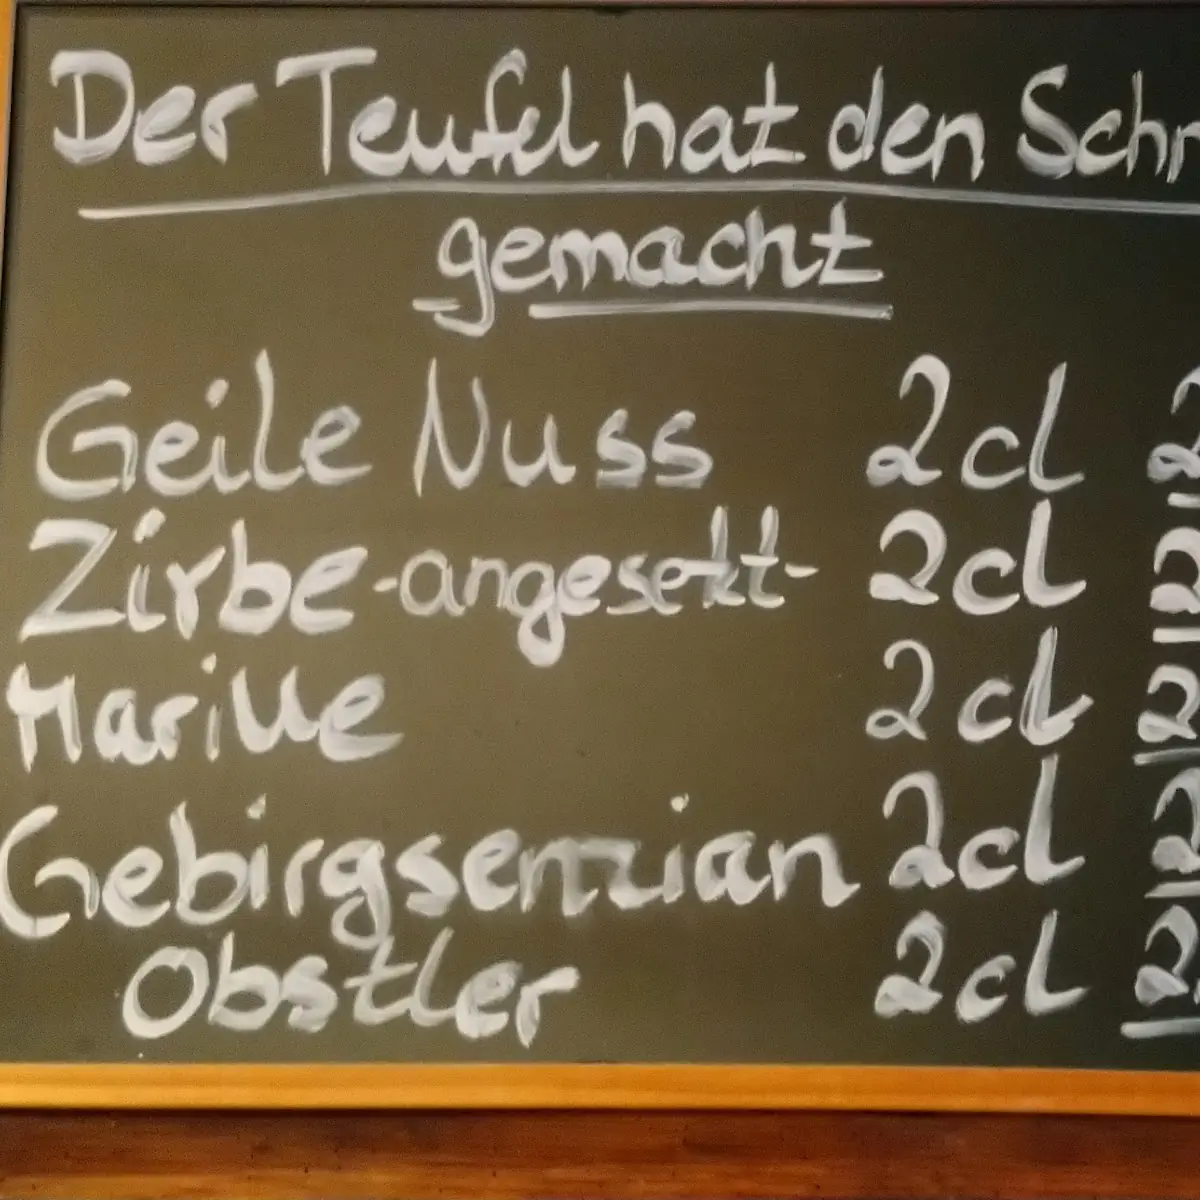 Der Teufel hat den Schn
gemacht
Geile Nuss 2cl 2
Zirbe -angesetzt- 2cl 2
Marille 2cl 2
Gebirgsenzian 2cl 2
Obstler 2cl 2